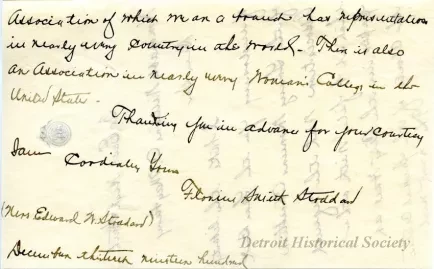 Association of which we are a branch has representatives
in nearly every country in the world. There is also
an Association in nearly every Woman's College in the
United States.
Thanking you in advance for your courtesy
I am Cordially Yours
Florence Smith Stoddard
(Mrs Edward W. Stoddard)
December thirteenth nineteen hundred
Detroit Historical Society